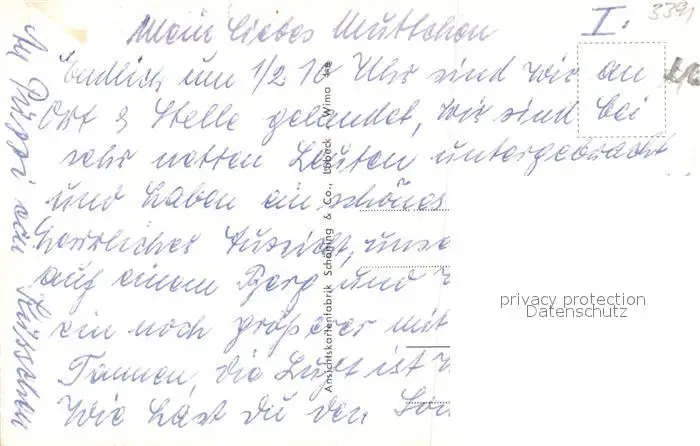 I.
3391
Mein liebes Muttchen
Endlich um 1/2 10 Uhr sind wir an
Ort & Stelle gelandet, wir sind bei
sehr netten Leuten untergebracht
und haben ein schönes
herrliches Aussicht, unse
auf einem Berg und
ein noch größerer mit
Tannen, die Luft ist
Wie hast du den Son
An Püssi ein Küsschen
Ansichtskartenfabrik Schöning & Co., Lübeck - Wima
privacy protection
Datenschutz